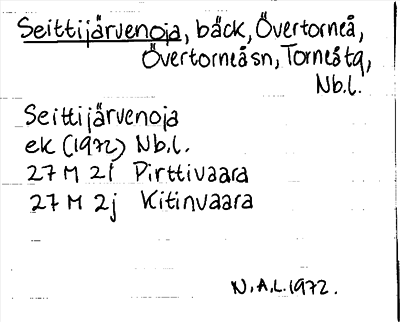 Seittijärvenoja, bäck, Övertorneå,
Övertorneå sn, Torneå tg,
Nb.l.
Seittijärvenoja
ek (1972) Nb.l.
27 M 2i Pirttivaara
27 M 2j Kitinvaara
N.A.L. 1972.